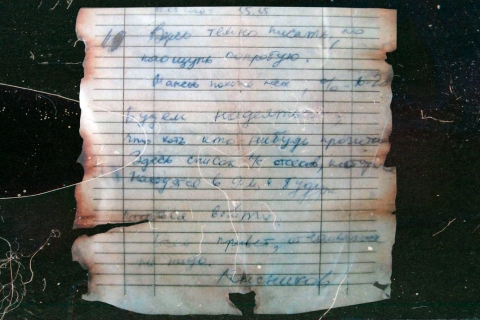 15.15
Здесь темно писать, но
наощупь попробую.
Шансов похоже нет, % 10-20
Будем надеяться,
что хоть кто нибудь прочитает
Здесь список л/с отсеков, которые
находятся в 9-м и будут
выйти.
Всем привет, отчаиваться
не надо.
Колесников